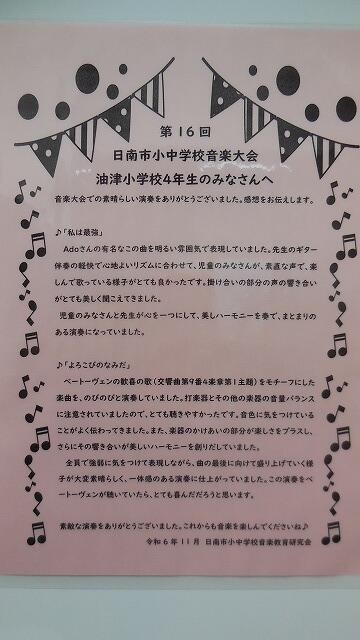 第16回
日南市小中学校音楽大会
油津小学校4年生のみなさんへ
音楽大会での素晴らしい演奏をありがとうございました。感想をお伝えします。
♪「私は最強」
Adoさんの有名なこの曲を明るい雰囲気で表現していました。先生のギター
伴奏の軽快で心地よいリズムに合わせて、児童のみなさんが、素直な声で、楽
しんで歌っている様子がとても良かったです。掛け合いの部分の声の響き合い
がとても美しく聞こえてきました。
児童のみなさんと先生が心を一つにして、美しいハーモニーを奏で、まとまりの
ある演奏になっていました。
♪「よろこびのなみだ」
ベートーヴェンの歓喜の歌(交響曲第9番4楽章第1主題)をモチーフにした
楽曲を、のびのびと演奏していました。打楽器とその他の楽器の音量バランス
に注意されていましたので、とても聴きやすかったです。音色に気をつけている
ことがよく伝わってきました。また、楽器のかけあいの部分が楽しさをプラスし、
さらにその響き合いが美しいハーモニーを創りだしていました。
全員で強弱に気をつけて表現しながら、曲の最後に向けて盛り上げていく様
子が大変素晴らしく、一体感のある演奏に仕上がっていました。この演奏をベ
ートーヴェンが聴いていたら、とても喜んだだろうと思います。
素敵な演奏をありがとうございました。これからも音楽を楽しんでくださいね♪
令和6年11月 日南市小中学校音楽教育研究会